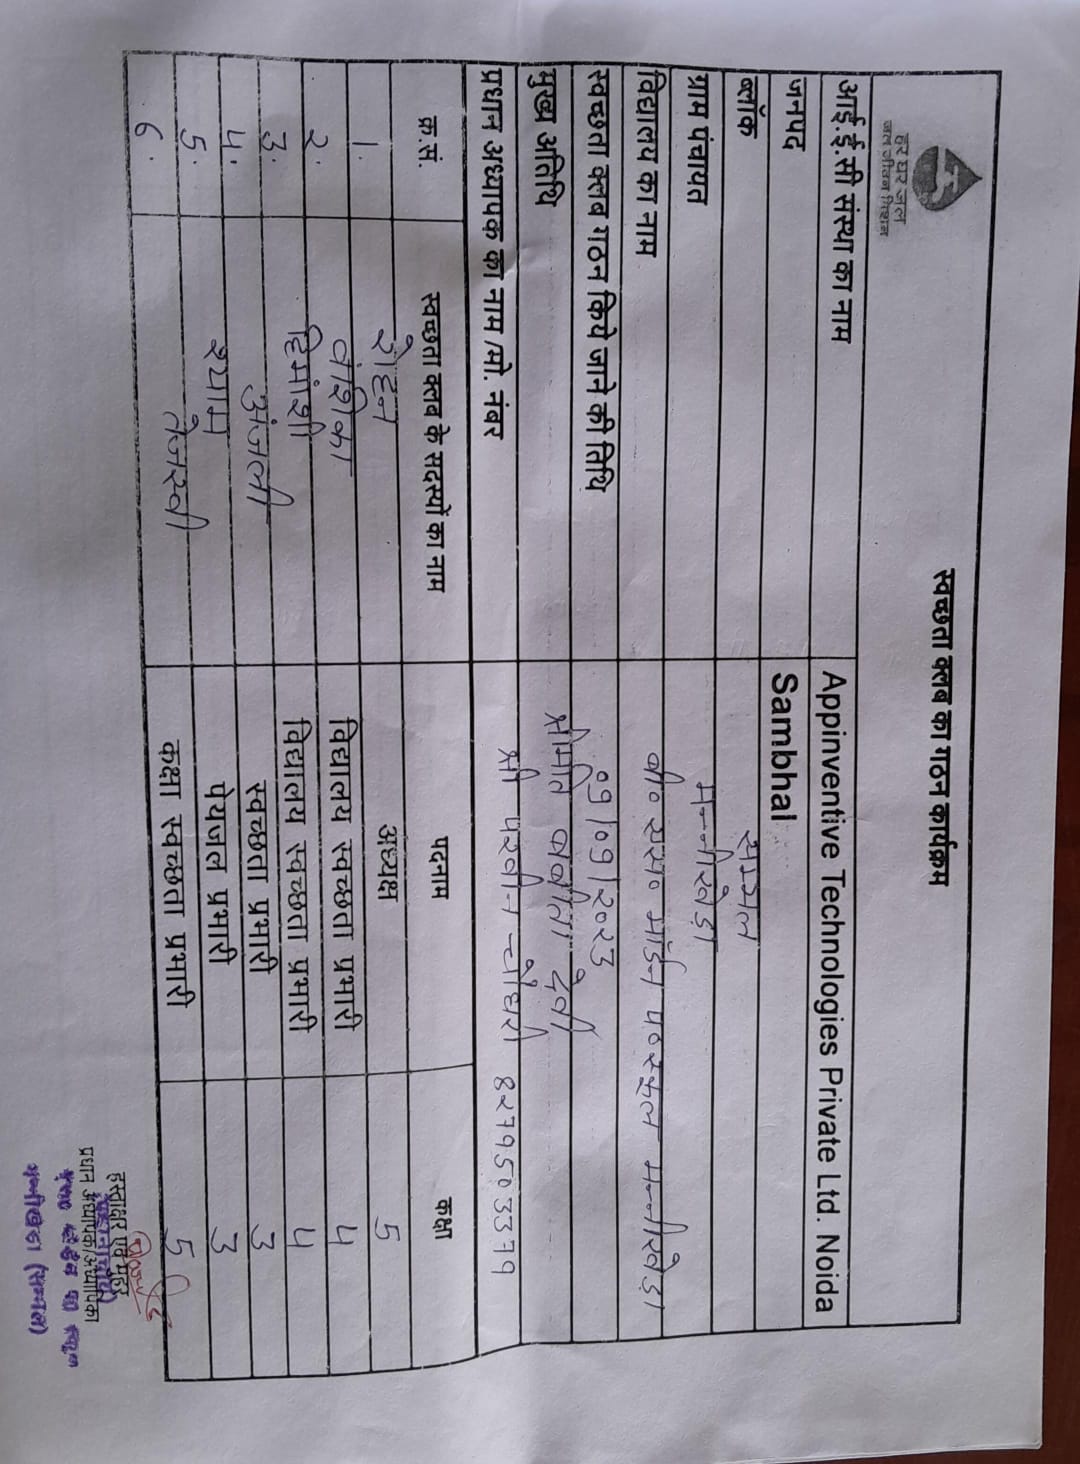 हर घर जल
जल जीवन मिशन
स्वच्छता क्लब का गठन कार्यक्रम
आई.ई.सी संस्था का नाम Appinventive Technologies Private Ltd. Noida
जनपद Sambhal
ब्लॉक सम्भल
ग्राम पंचायत मन्नीखेड़ा
विद्यालय का नाम बी० एस० मॉर्डन प० स्कूल मन्नीखेड़ा
स्वच्छता क्लब गठन किये जाने की तिथि ०९/०९/२०२३
मुख्य अतिथि श्रीमति बबीता देवी
प्रधान अध्यापक का नाम /मो. नंबर श्री परवीन चौधरी 8279503379
क्र.सं. स्वच्छता क्लब के सदस्यों का नाम पदनाम कक्षा
1. रोहन अध्यक्ष 5
२. वंशिका विद्यालय स्वच्छता प्रभारी ५
3. हिमांशी विद्यालय स्वच्छता प्रभारी ५
५. अंजली स्वच्छता प्रभारी 3
5. श्याम पेयजल प्रभारी 3
6. तेजस्वी कक्षा स्वच्छता प्रभारी 5
हस्ताक्षर एवं मुहर
प्रधानाचार्य
प्रधान अध्यापक/अध्यापिका
मॉर्डन प० स्कूल
मन्नीखेडा (सम्भल)